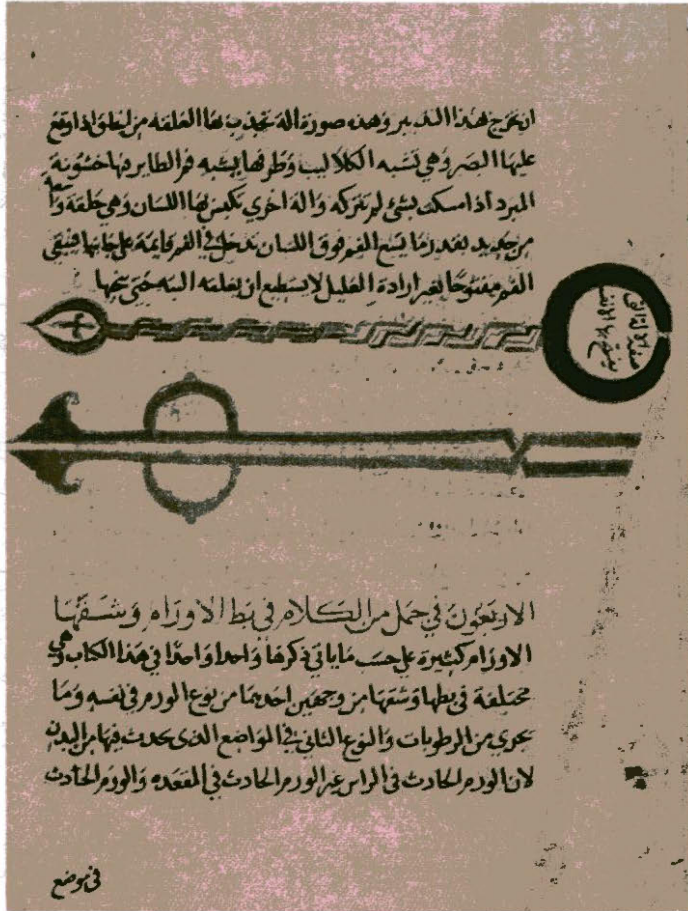 ان تخرج بهذا التدبير وهذه صورة الة تجذب بها العلقه من الحلق اذا وقع
عليها البصر وهي تشبه الكلاليب وطرفها يشبه فم الطاير فيها خشونة
المبرد اذا مسكت بشئ لم تتركه والة اخري تكبس بها اللسان وهي حلقة
من حديد بقدر ما يسع الفم فوق اللسان تدخل في الفم قايمة علي جانبها فيبقي
الفم مفتوحا بغير ارادة العليل لا يستطيع ان يغلقه البته حتي ينحيها
صفة الالة التي
الاربعون في جمل من الكلام في بط الاورام وشقها
الاورام كثيرة علي حسب ما ياتي ذكرها واحدا واحدا في هذا الكتاب وهي
مختلفة في بطها وشقها من وجهين احدهما من نوع الورم في نفسه وما
يحوي من الرطوبات والنوع الثاني في المواضع الذي يحدث فيها من البدن
لان الورم الحادث في الراس غير الورم الحادث في المقعده والورم الحادث
في موضع